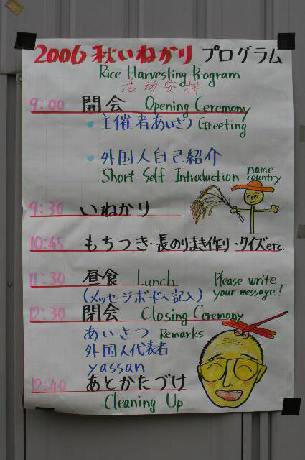 2006 秋いねかり プログラム
Rice Harvesting Program
9:00 開会 Opening Ceremony
・主催者あいさつ Greeting
・外国人自己紹介
Short Self Introduction name country
9:30 いねかり
10:45 もちつき・長のりまき作り・クイズetc.
11:30 昼食 Lunch Please write your message!
(メッセージボードへ記入)
12:30 閉会 Closing Ceremony
あいさつ Remarks
外国人代表者
yassan
12:40 あとかたづけ
Cleaning Up